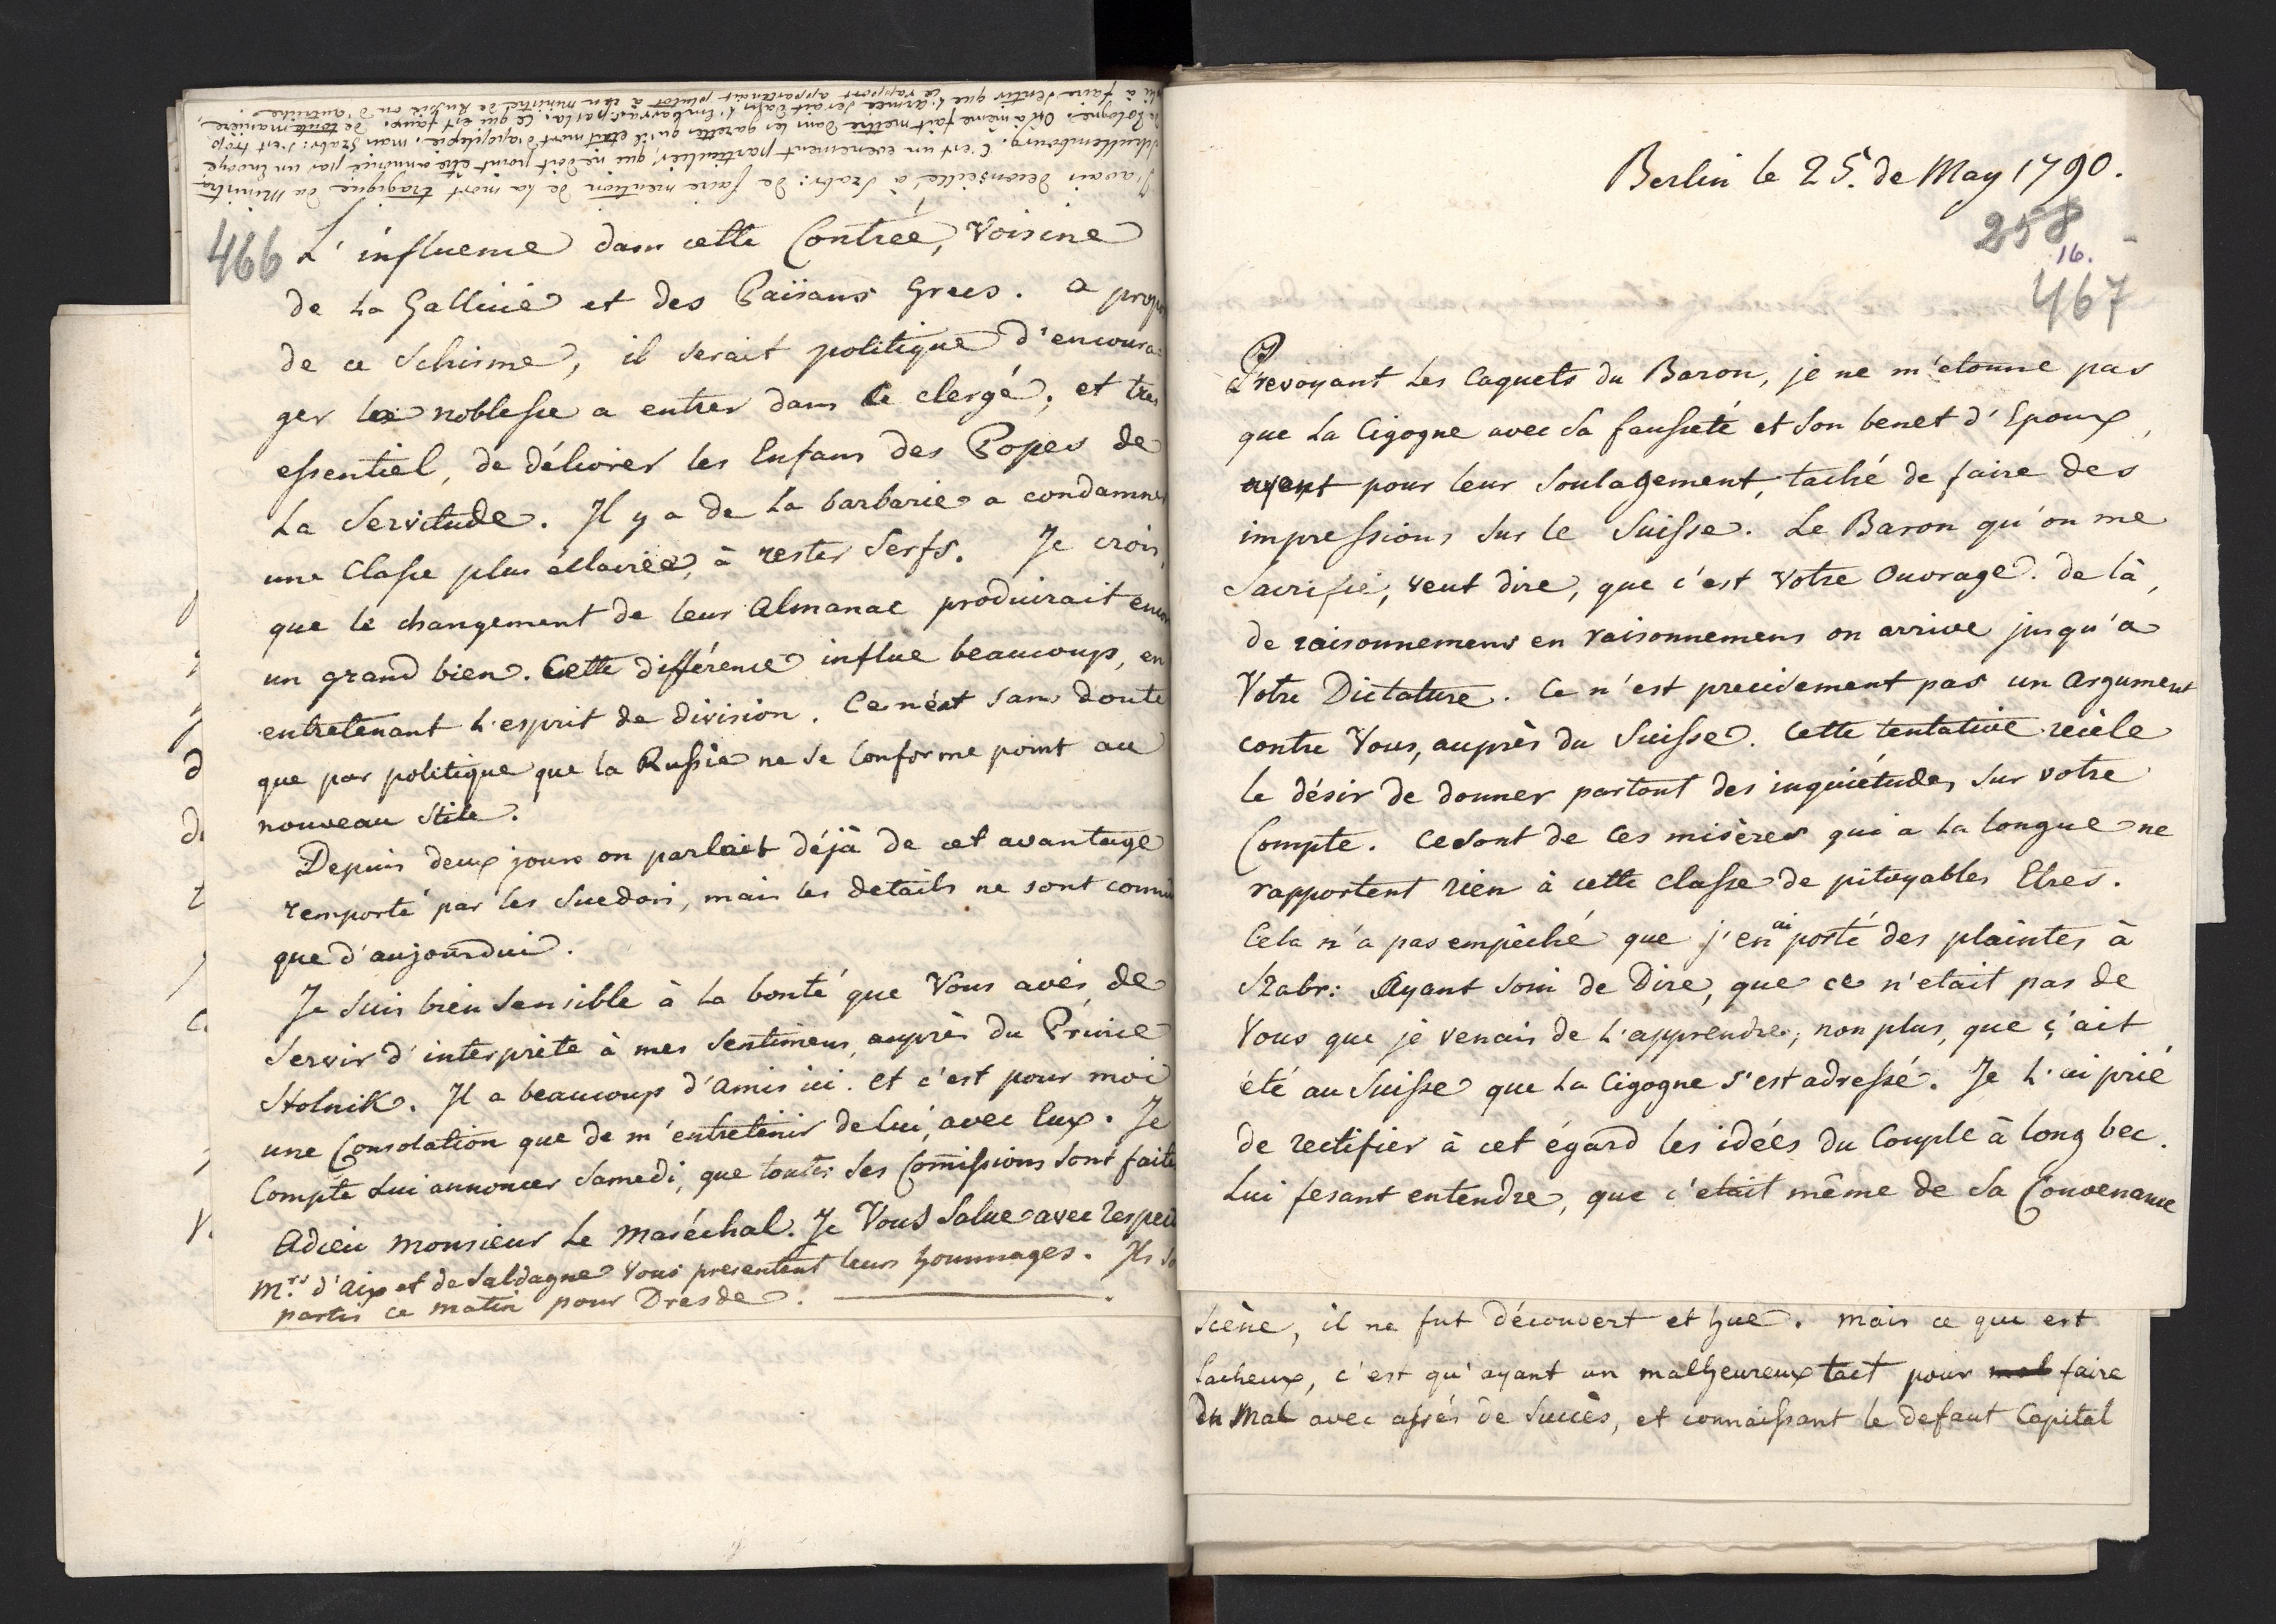 J'avais deconseillé à Szabr: de faire mention de la mort tragique du Ministre
Schullembourg. C'est un evenement particulier, que ne doit point être annoncé par un Envoyé
de Pologne. On a même fait mettre dans les gazettes qu'il était mort d'apoplexie. mais Szabr: s'est trop
à faire sentir que l'armée serait dans l'embarras par là; ce qui est faux. De toute manière,
ce rapport appartenait plutot à un ministre de Russie ou d'autriche.
466
L'influence dans cette Contrée, Voisine
de La Gallicie et des Païsans Grecs. a propos
de ce Schisme, il serait politique d'encoura=
ger la noblesse a entrer dans le clergé; et tres
essentiel, de délivrer les Enfans des Popes de
La Servitude. Il y a de la barbarie a condamner
une Classe plus éclairée, à rester Serfs. Je crois,
que le changement de leur Almanac produirait encor
un grand bien. Cette différence influe beaucoup, en
entretenant l'esprit de division. Ce n'est sans doute
que par politique que la Russie ne se Conforme point au
nouveau Stile.
Depuis deux jours on parlait déjà de cet avantage
remporté par les Suedois, mais les details ne sont connus
que d'aujourdui.
Je suis bien Sensible à la bonté que Vous avés, de
Servir d'interprète à mes Sentimens, auprès du Prince
Stolnik. Il a beaucoup d'amis ici. et c'est pour moi
une Consolation que de m'entretenir de lui, avec Eux. Je
Compte Lui annoncer Samedi, que toutes Ses Commissions Sont faites
Adieu Monsieur Le Maréchal. Je Vous Salue avec respect
Mrs. d'Aix et de Saldagne Vous presentent leurs hommages. Ils so
partis ce matin pour Dresde.
Berlin le 25. de May 1790.
258
16.
467
Prevoyant Les Caquets du Baron, je ne m'etonne pas
que La Cigogne avec Sa fausseté et Son benet d'Epoux,
ayent pour leur Soulagement, taché de faire des
impressions Sur le Suisse. Le Baron qu'on me
Sacrifie, veut dire, que c'est votre Ouvrage. de là,
de raisonnemens en raisonnemens on arrive jusqu'a
Votre Dictature. Ce n'est precisement pas un Argument
contre Vous, auprès du Suisse. Cette tentative recèle
le désir de donner partout des inquiétudes Sur votre
Compte. Ce Sont de Ces misères qui a la longue ne
rapportent rien à cette Classe de pitoyables Etres.
Cela n'a pas empêché que j'en ai porté des plaintes à
Szabr: Ayant Soin de Dire, que ce n'etait pas de
Vous que je venais de L'apprendre; non plus, que ç'ait
été au Suisse que La Cigogne s'est adressé. Je L'ai prié
de rectifier à cet égard les idées du Couple à long bec.
Lui fesant entendre, que c'etait même de Sa Convenance
Scène, il ne fut découvert et hué. Mais ce qui est
facheux, c'est qu'ayant un malheureux tact pour mal faire
du Mal avec assés de Succès, et connaissant le defaut Capital